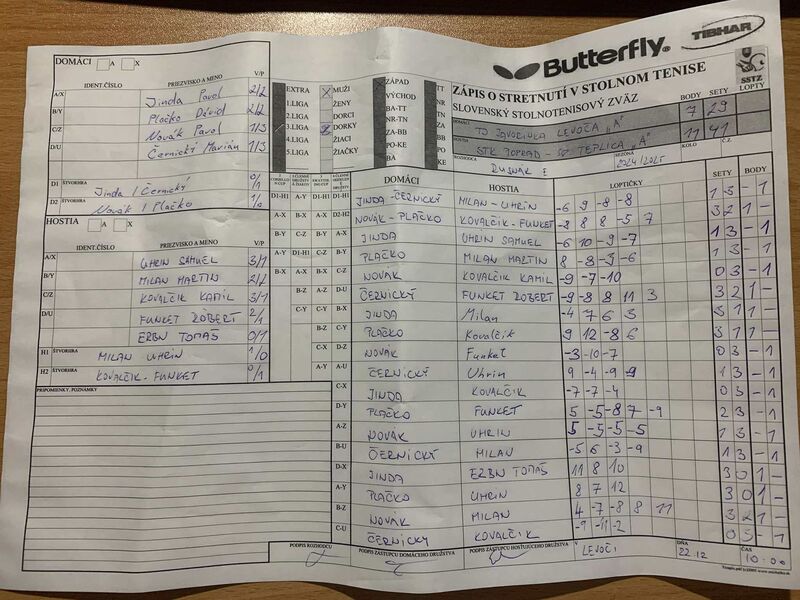 Butterfly
TIBHAR
SSTZ
ZÁPIS O STRETNUTÍ V STOLNOM TENISE
SLOVENSKÝ STOLNOTENISOVÝ ZVÄZ
BODY SETY LOPTY
DOMÁCI
TJ JAVORINKA LEVOČA "A" 7 29
HOSTIA
STK POPRAD - ST TEPLICA "A" 11 41
ROZHODCA SEZÓNA KOLO Č.Z.
RUSNÁK E 2024/2025
EXTRA X MUŽI
1.LIGA ŽENY
2.LIGA DORCI
3.LIGA DORKY
4.LIGA ŽIACI
5.LIGA ŽIAČKY
ZÁPAD TT
VÝCHOD TN
BA-TT NR
NR-TN ZA
ZA-BB BB
PO-KE PO
BA KE
DOMÁCI A X
IDENT.ČÍSLO PRIEZVISKO A MENO V/P
A/X Jinda Pavol 2/2
B/Y Plačko Dávid 2/2
C/Z Novák Pavol 1/3
D/U Černický Marián 1/3
D1 ŠTVORHRA Jinda / Černický 0/1
D2 ŠTVORHRA Novák / Plačko 1/0
HOSTIA A X
IDENT.ČÍSLO PRIEZVISKO A MENO V/P
A/X UHRIN SAMUEL 3/1
B/Y MILAN MARTIN 2/2
C/Z KOVALČIK KAMIL 3/1
D/U FUNKET ROBERT 2/1
ERBN TOMÁŠ 0/1
H1 ŠTVORHRA MILAN UHRIN 1/0
H2 ŠTVORHRA KOVALČIK - FUNKET 0/1
PRIPOMIENKY, POZNÁMKY
DOMÁCI HOSTIA LOPTIČKY SETY BODY
D1-H1 JINDA - ČERNICKÝ MILAN - UHRIN -6 9 -8 -8 1 3 - 1
D2-H2 NOVÁK - PLAČKO KOVALČIK - FUNKET -8 8 8 -5 7 3 2 1 -
A-X JINDA UHRIN SAMUEL -6 10 -9 -7 1 3 - 1
B-Y PLAČKO MILAN MARTIN 8 -8 -3 -6 1 3 - 1
C-Z NOVÁK KOVALČIK KAMIL -9 -7 -10 0 3 - 1
D-U ČERNICKÝ FUNKET ROBERT -9 -8 8 11 3 3 2 1 -
B-X JINDA Milan -4 7 6 3 3 1 1 -
C-Y PLAČKO Kovalčik 9 12 -8 6 3 1 1 -
D-Z NOVÁK Funket -3 -10 -7 0 3 - 1
A-U ČERNICKÝ Uhrin 9 -4 -9 -9 1 3 - 1
C-X JINDA KOVALČIK -7 -7 -4 0 3 - 1
D-Y PLAČKO FUNKET 5 -5 -8 7 -9 2 3 - 1
A-Z NOVÁK UHRIN 5 -5 -5 -5 1 3 - 1
B-U ČERNICKÝ MILAN -5 6 -3 -9 1 3 - 1
D-X JINDA ERBN TOMÁŠ 11 8 10 3 0 1 -
A-Y PLAČKO UHRIN 8 7 12 3 0 1 -
B-Z NOVÁK MILAN 4 -7 -8 8 11 3 2 1 -
C-U ČERNICKÝ KOVALČIK -11 -2 0 3 - 1
PODPIS ROZHODCU PODPIS ZÁSTUPCU DOMÁCEHO DRUŽSTVA PODPIS ZÁSTUPCU HOSŤUJÚCEHO DRUŽSTVA
V LEVOČI DŇA 22.12 ČAS 10:00